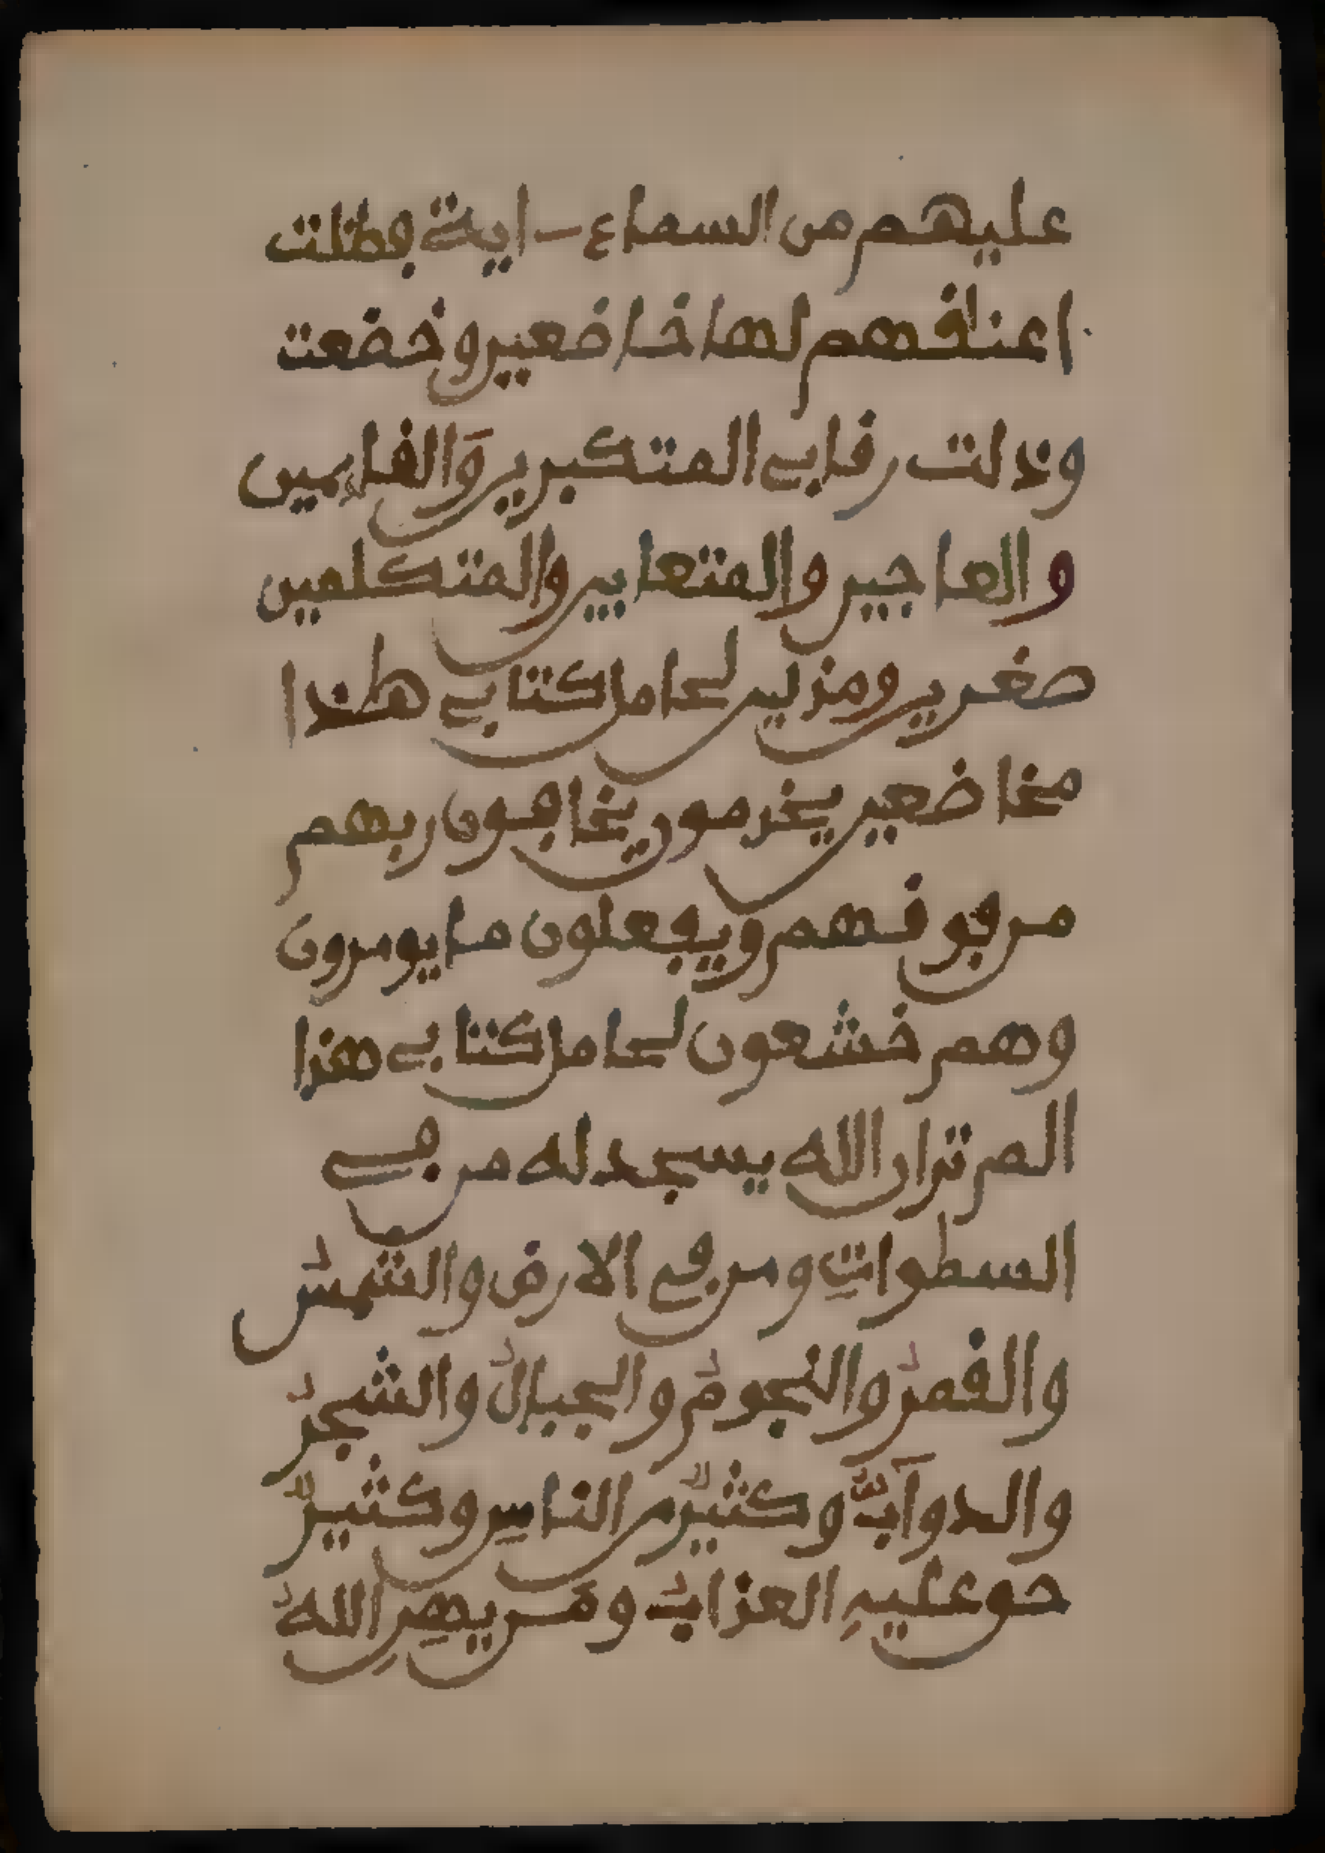 عليهم من السماء اية فظلت
اعناقهم لها خاضعين وخضعت
وذلت رقاب المتكبرين والقايمين
والعاجين والمتعابين والمتكلمين
صغرين ومذلين لحامل كتابي هذا
مخاضعين يخدمون يخافون ربهم
من فوقهم ويفعلون ما يومرون
وهم خشعون لحامل كتابي هذا
الم تر ان الله يسجد له من في
السموات ومن في الارض والشمسُ
والقمرُ والنجومُ والجبالُ والشجرُ
والدوآبُّ وكثيرٌ من الناسِ وكثيرٌ
حق عليهِ العذابُ ومَن يهِنِ اللهُ